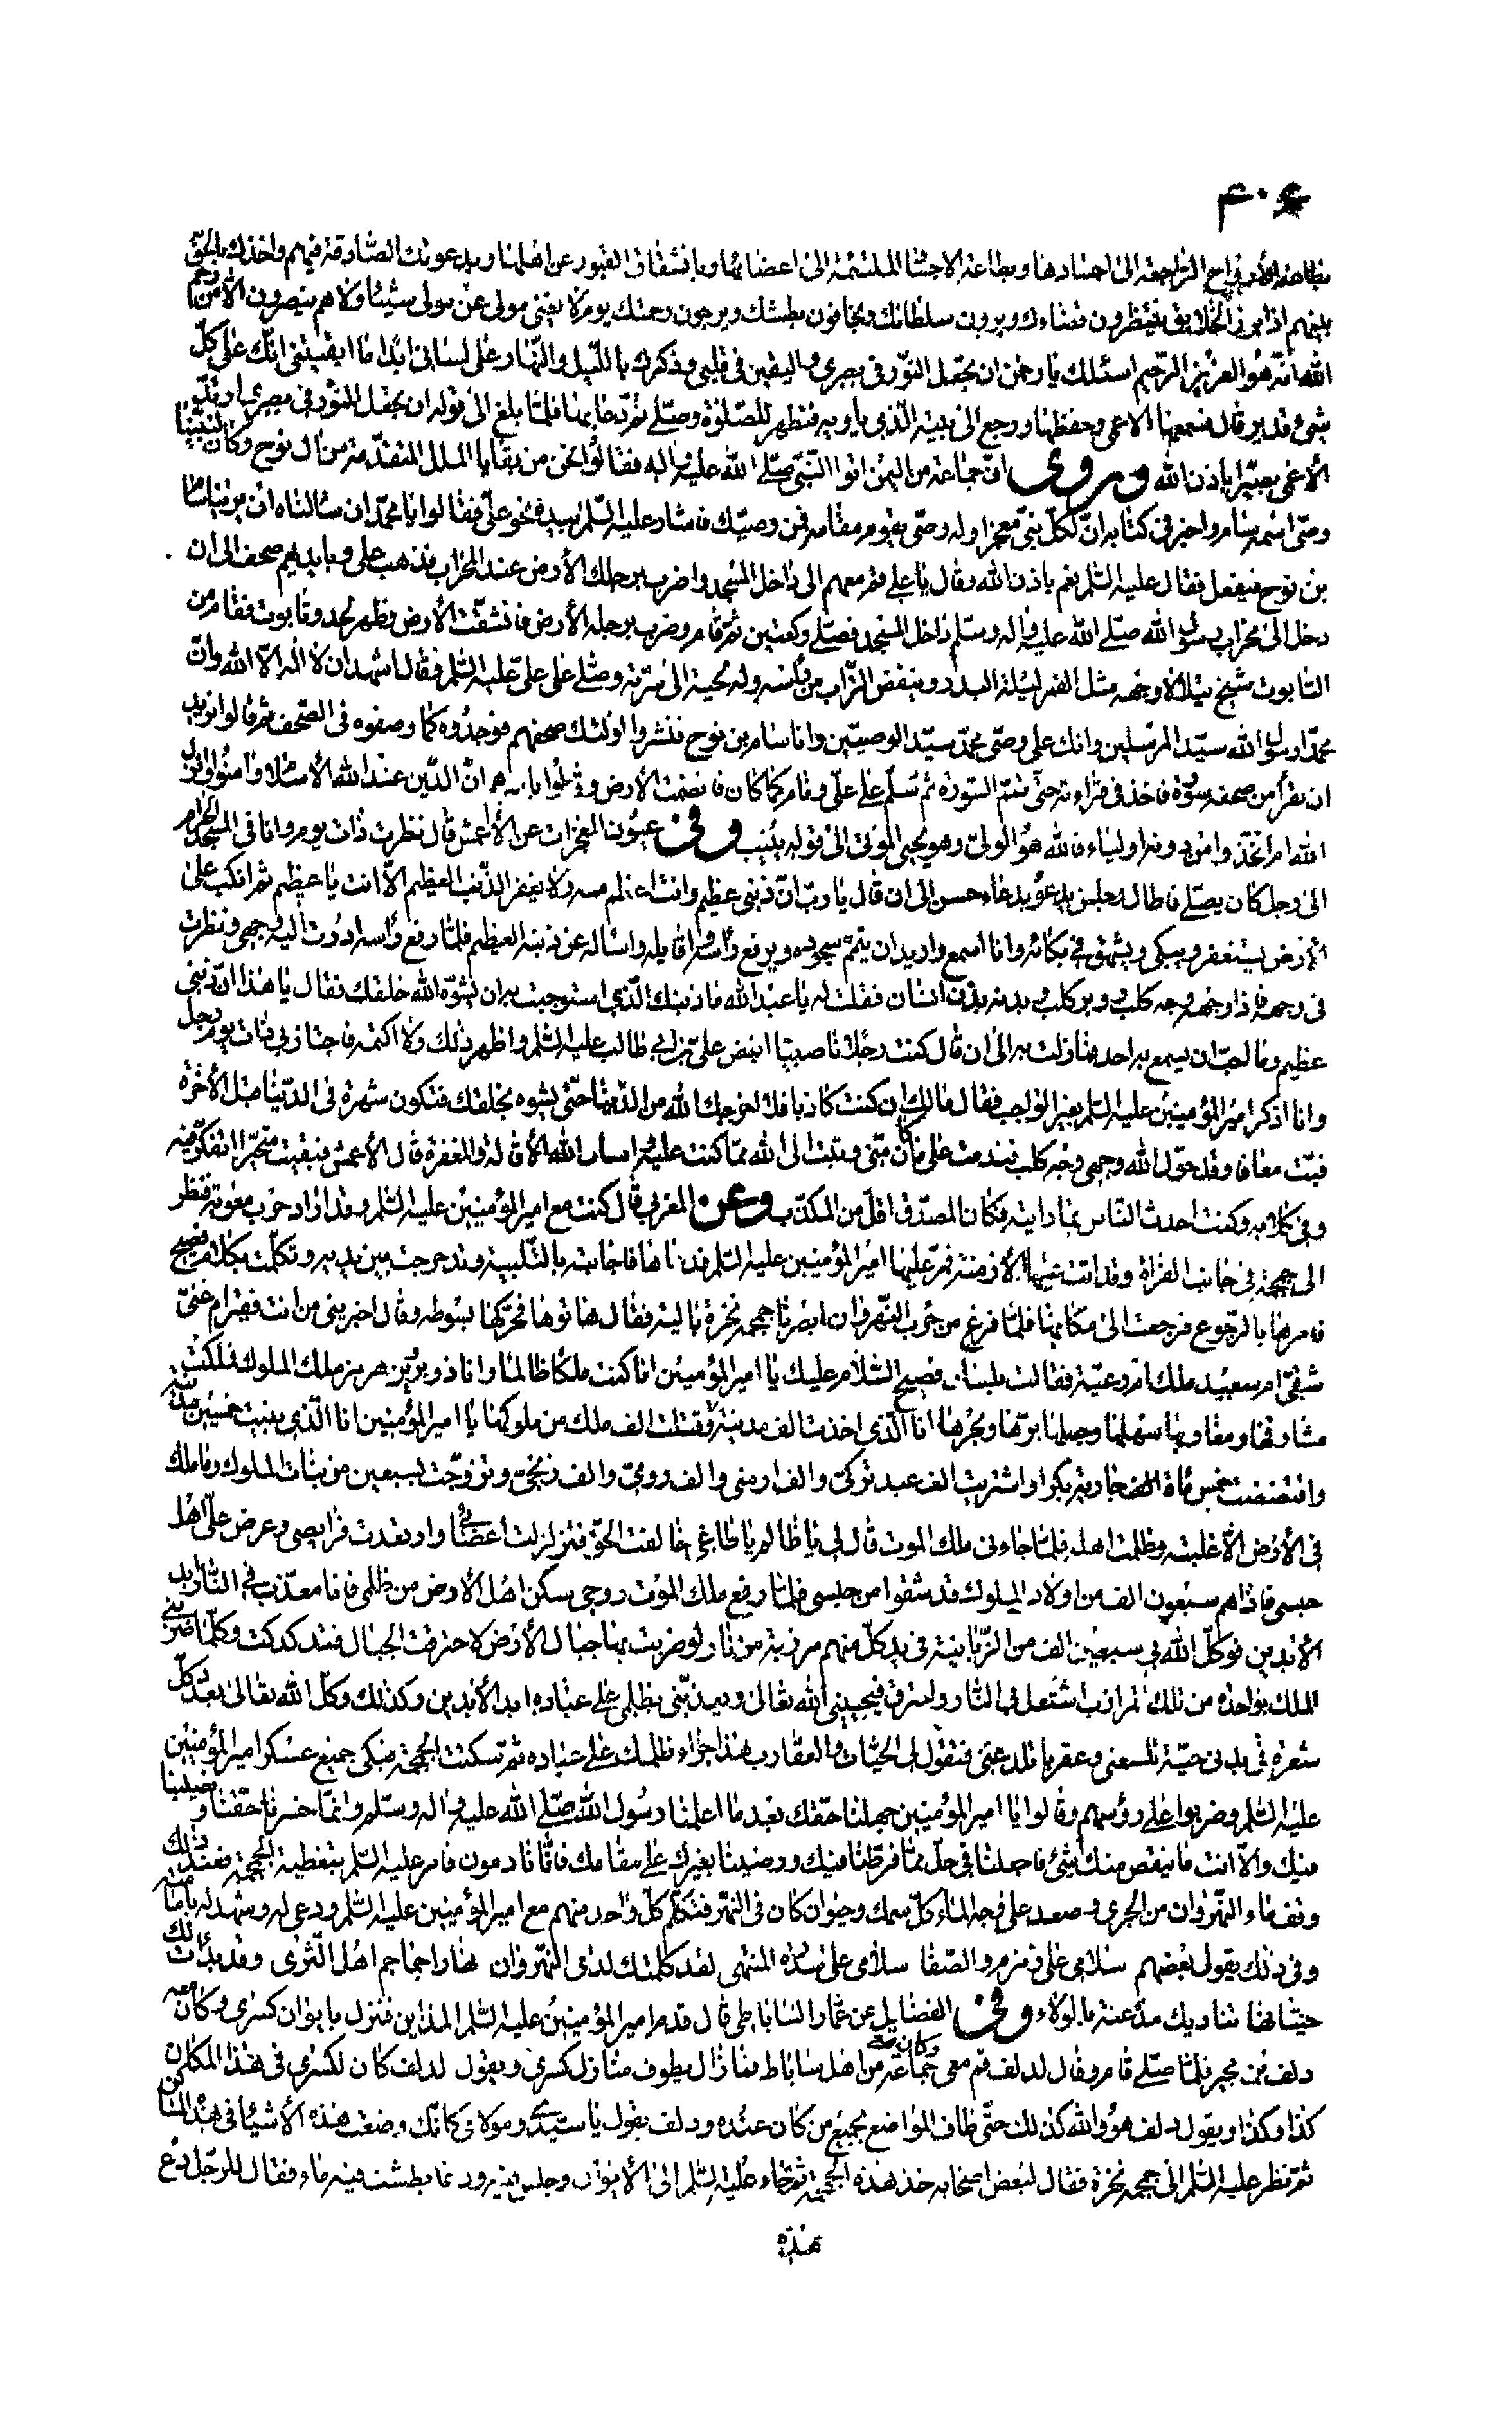 ۴۰۶
بطاعة الأرواح الراجعة الى اجسادها وبطاعة الاجساد الملتئمة الى اعضائها وبانشقاق القبور عن اهلها وبدعوتك الصادقة فيهم واخذك بالحق
بينهم اذا برز الخلايق ينتظرون قضاءك ويرون سلطانك ويخافون بطشك ويرجون رحمتك يوم لا يغنى مولى عن مولى شيئا ولا هم ينصرون الا من رحم
الله انه هو العزيز الرحيم اسئلك يا رحمن ان تجعل النور فى بصرى واليقين فى قلبى وذكرك بالليل والنهار على لسانى ابدا ما ابقيتنى انك على كل
شئ قدير قال فسمعها الاعمى وحفظها ورجع الى بيته الذى ياويه فتطهر للصلوة وصلى ثم دعا بها فلما بلغ الى قوله ان تجعل النور فى بصرى ارتد
الأعمى بصيرا باذن الله وروى ان جماعة من اليمن اتوا النبى صلى الله عليه واله فقالوا نحن من بقايا الملل المتقدمة من ال نوح وكان لنبينا
وصى اسمه سام واخبر فى كتابه ان لكل نبى معجزا وله وصى يقوم مقامه فمن وصيك فاشار عليه السلم بيده نحو على فقالوا يا محمد ان سالناه ان يرينا سام
بن نوح فيفعل فقال عليه السلم نعم باذن الله وقال يا على قم معهم الى داخل المسجد واضرب برجلك الأرض عند المحراب فذهب على وبايديهم صحف الى ان
دخل الى محراب رسول الله صلى الله عليه واله وسلم داخل المسجد فصلى ركعتين ثم قام وضرب برجله الأرض فانشقت الأرض وظهر لحد وتابوت فقام من
التابوت شيخ يتلألأ وجهه مثل القمر ليلة البدر وينفض التراب من رأسه وله لحية الى سرته وصلى على على عليه السلم وقال اشهد ان لا اله الا الله وان
محمدا رسول الله سيد المرسلين وانك على وصى محمد سيد الوصيين وانا سام بن نوح فنشروا اولئك صحفهم فوجدوه كما وصفوه فى الصحف ثم قالوا نريد
ان يقرأ من صحفه سورة فاخذ فى قراءته حتى تمم السورة ثم سلم على على ونام كما كان فانضمت الأرض وقالوا باسرهم ان الدين عند الله الأسلام وامنوا وانزل
الله ام اتخذوا من دونه اولياء فالله هو الولى وهو يحيى الموتى الى قوله ينيب وفى عيون المعجزات عن الأعمش قال نظرت ذات يوم وانا فى المسجد الحرام
الى رجل كان يصلى فاطال وجلس يدعو بدعاء حسن الى ان قال يا رب ان ذنبى عظيم وانت اعظم منه ولا يغفر الذنب العظيم الا انت يا عظيم ثم انكب على
الأرض يستغفر ويبكى ويشهق فى بكائه وانا اسمع واريد ان يتم سجوده ويرفع رأسه واقابله واسأله عن ذنبه العظيم فلما رفع رأسه ادرت اليه وجهى ونظرت
فى وجهه فاذا وجهه وجه كلب ووبر كلب وبدنه بدن انسان فقلت له يا عبد الله ما ذنبك الذى استوجبت به ان يشوه الله خلقك فقال يا هذا ان ذنبى
عظيم وما احب ان يسمع به احد فما زلت به الى ان قال كنت رجلا ناصبيا ابغض على بن ابى طالب عليه السلم واظهر ذلك ولا اكتمه فاجتاز بى ذات يوم رجل
وانا اذكر امير المؤمنين عليه السلم بغير الواجب فقال مالك ان كنت كاذبا فلا اخرجك الله من الدنيا حتى يشوه بخلقك فتكون شهرة فى الدنيا قبل الأخرة
فبت معافا وقد حول الله وجهى وجه كلب فندمت على ما كان منى وتبت الى الله مما كنت عليه واسأل الله الأقالة والمغفرة قال الأعمش فبقيت متحيرا اتفكر فيه
وفى كلامه وكنت احدث الناس بما رايته فكان المصدق اقل من المكذب وعن المغربى قال كنت مع امير المؤمنين عليه السلم وقد اراد حرب معوية فنظر
الى جمجمة فى جانب الفراة وقد اتت عليها الأزمنة فمر عليها امير المؤمنين عليه السلم فدعاها فاجابته بالتلبية وتدحرجت بين يديه وتكلمت بكلام فصيح
فامرها بالرجوع فرجعت الى مكانها فلما فرغ من حرب النهروان ابصرنا جمجمة نخرة بالية فقال هاتوها فحركها بسوطه وقال اخبرينى من انت فقير ام غنى
شقى ام سعيد ملك ام رعية فقالت بلسان فصيح السلام عليك يا امير المؤمنين انا كنت ملكا ظالما وانا ذو يزن بن هرمز ملك الملوك فملكت
مشارقها ومغاربها سهلها وجبلها برها وبحرها انا الذى اخذت الف مدينة وقتلت الف ملك من ملوكها يا امير المؤمنين انا الذى بنيت خمسين مدينة
وافتضضت خمس مأة الف جارية بكرا واشتريت الف عبد تركى والف ارمنى والف رومى والف زنجى وتزوجت بسبعين من بنات الملوك وما ملك
فى الأرض الا غلبته وظلمت اهله فلما جاءنى ملك الموت قال لى يا ظالم يا طاغى خالفت الحق فتزلزلت اعضائى وارتعدت فرايصى وعرض على اهل
حبسى فاذا هم سبعون الف من اولاد الملوك قد شقوا من حبسى فلما رفع ملك الموت روحى سكن اهل الأرض من ظلمى فانا معذب فى النار ابد
الأبدين فوكل الله بى سبعين الف من الزبانية فى يد كل منهم مرزبة من نار لو ضربت بها جبال الأرض لاحترقت الجبال فتدكدكت وكلما ضربنى
الملك بواحدة من تلك المرازب اشتعل فى النار واحترق فيحيينى الله تعالى ويعذبنى بظلمى على عباده ابد الأبدين وكذلك وكل الله تعالى بعدد كل
شعرة فى بدنى حية تلسعنى وعقربا تلدغنى فتقول لى الحيات والعقارب هذا جزاء ظلمك على عباده ثم سكتت الجمجمة فبكى جميع عسكر امير المؤمنين
عليه السلم وضربوا على رؤسهم وقالوا يا امير المؤمنين جهلنا حقك بعد ما اعلمنا رسول الله صلى الله عليه واله وسلم وانما خسرنا حقنا ونصيبنا
فيك والا انت ما ينقص منك شئ فاجعلنا فى حل مما فرطنا فيك ورضينا بغيرك على مقامك فانا نادمون فامر عليه السلم بتغطية الجمجمة فعند ذلك
وقف ماء النهروان من الجرى وصعد على وجه الماء كل سمك وحيوان كان فى النهر فتكلم كل واحد منهم مع امير المؤمنين عليه السلم ودعى له وشهد له بامامته
وفى ذلك يقول بعضهم سلامى على زمزم والصفا سلامى على سدرة المنتهى لقد كلمتك لدى النهروان نهارا جماجم اهل الثرى وقد بدأت لك
حيتانها تناديك مذعنة بالولاء وفى الفضايل عن عمار الساباطى قال قدم امير المؤمنين عليه السلم المداين فنزل بايوان كسرى وكان معه
دلف بن مجير فلما صلى قام وقال لدلف قم معى وكان معه جماعة من اهل ساباط فما زال يطوف منازل كسرى ويقول لدلف كان لكسرى فى هذا المكان
كذا وكذا ويقول دلف هو والله كذلك حتى طاف المواضع بجميع من كان عنده ودلف يقول يا سيدى ومولاى كانك وضعت هذه الأشياء فى هذه المساكن
ثم نظر عليه السلم الى جمجمة نخرة فقال لبعض اصحابه خذ هذه الجمجمة ثم جاء عليه السلم الى الأيوان وجلس فيه ودعا بطشت فيه ماء فقال للرجل دع
هذه